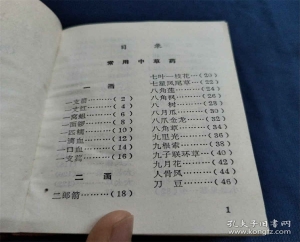 目录
常用中草药
一画
一支箭……(2)
一支红……(4)
一窝蛆……(6)
一面锣……(8)
一四……(10)
一滴血……(12)
一口血……(14)
一支蒿……(16)
二画
二郎箭……(18)
七叶一枝花……(20)
七星凤尾草……(22)
八角莲……(24)
八角枫……(26)
八树……(28)
八月瓜……(30)
八爪金龙……(32)
八角草……(34)
九里光……(36)
九根索……(38)
九子联环草……(40)
九月花……(42)
人骨风……(44)
刀豆……(46)
1
孔夫子旧书网